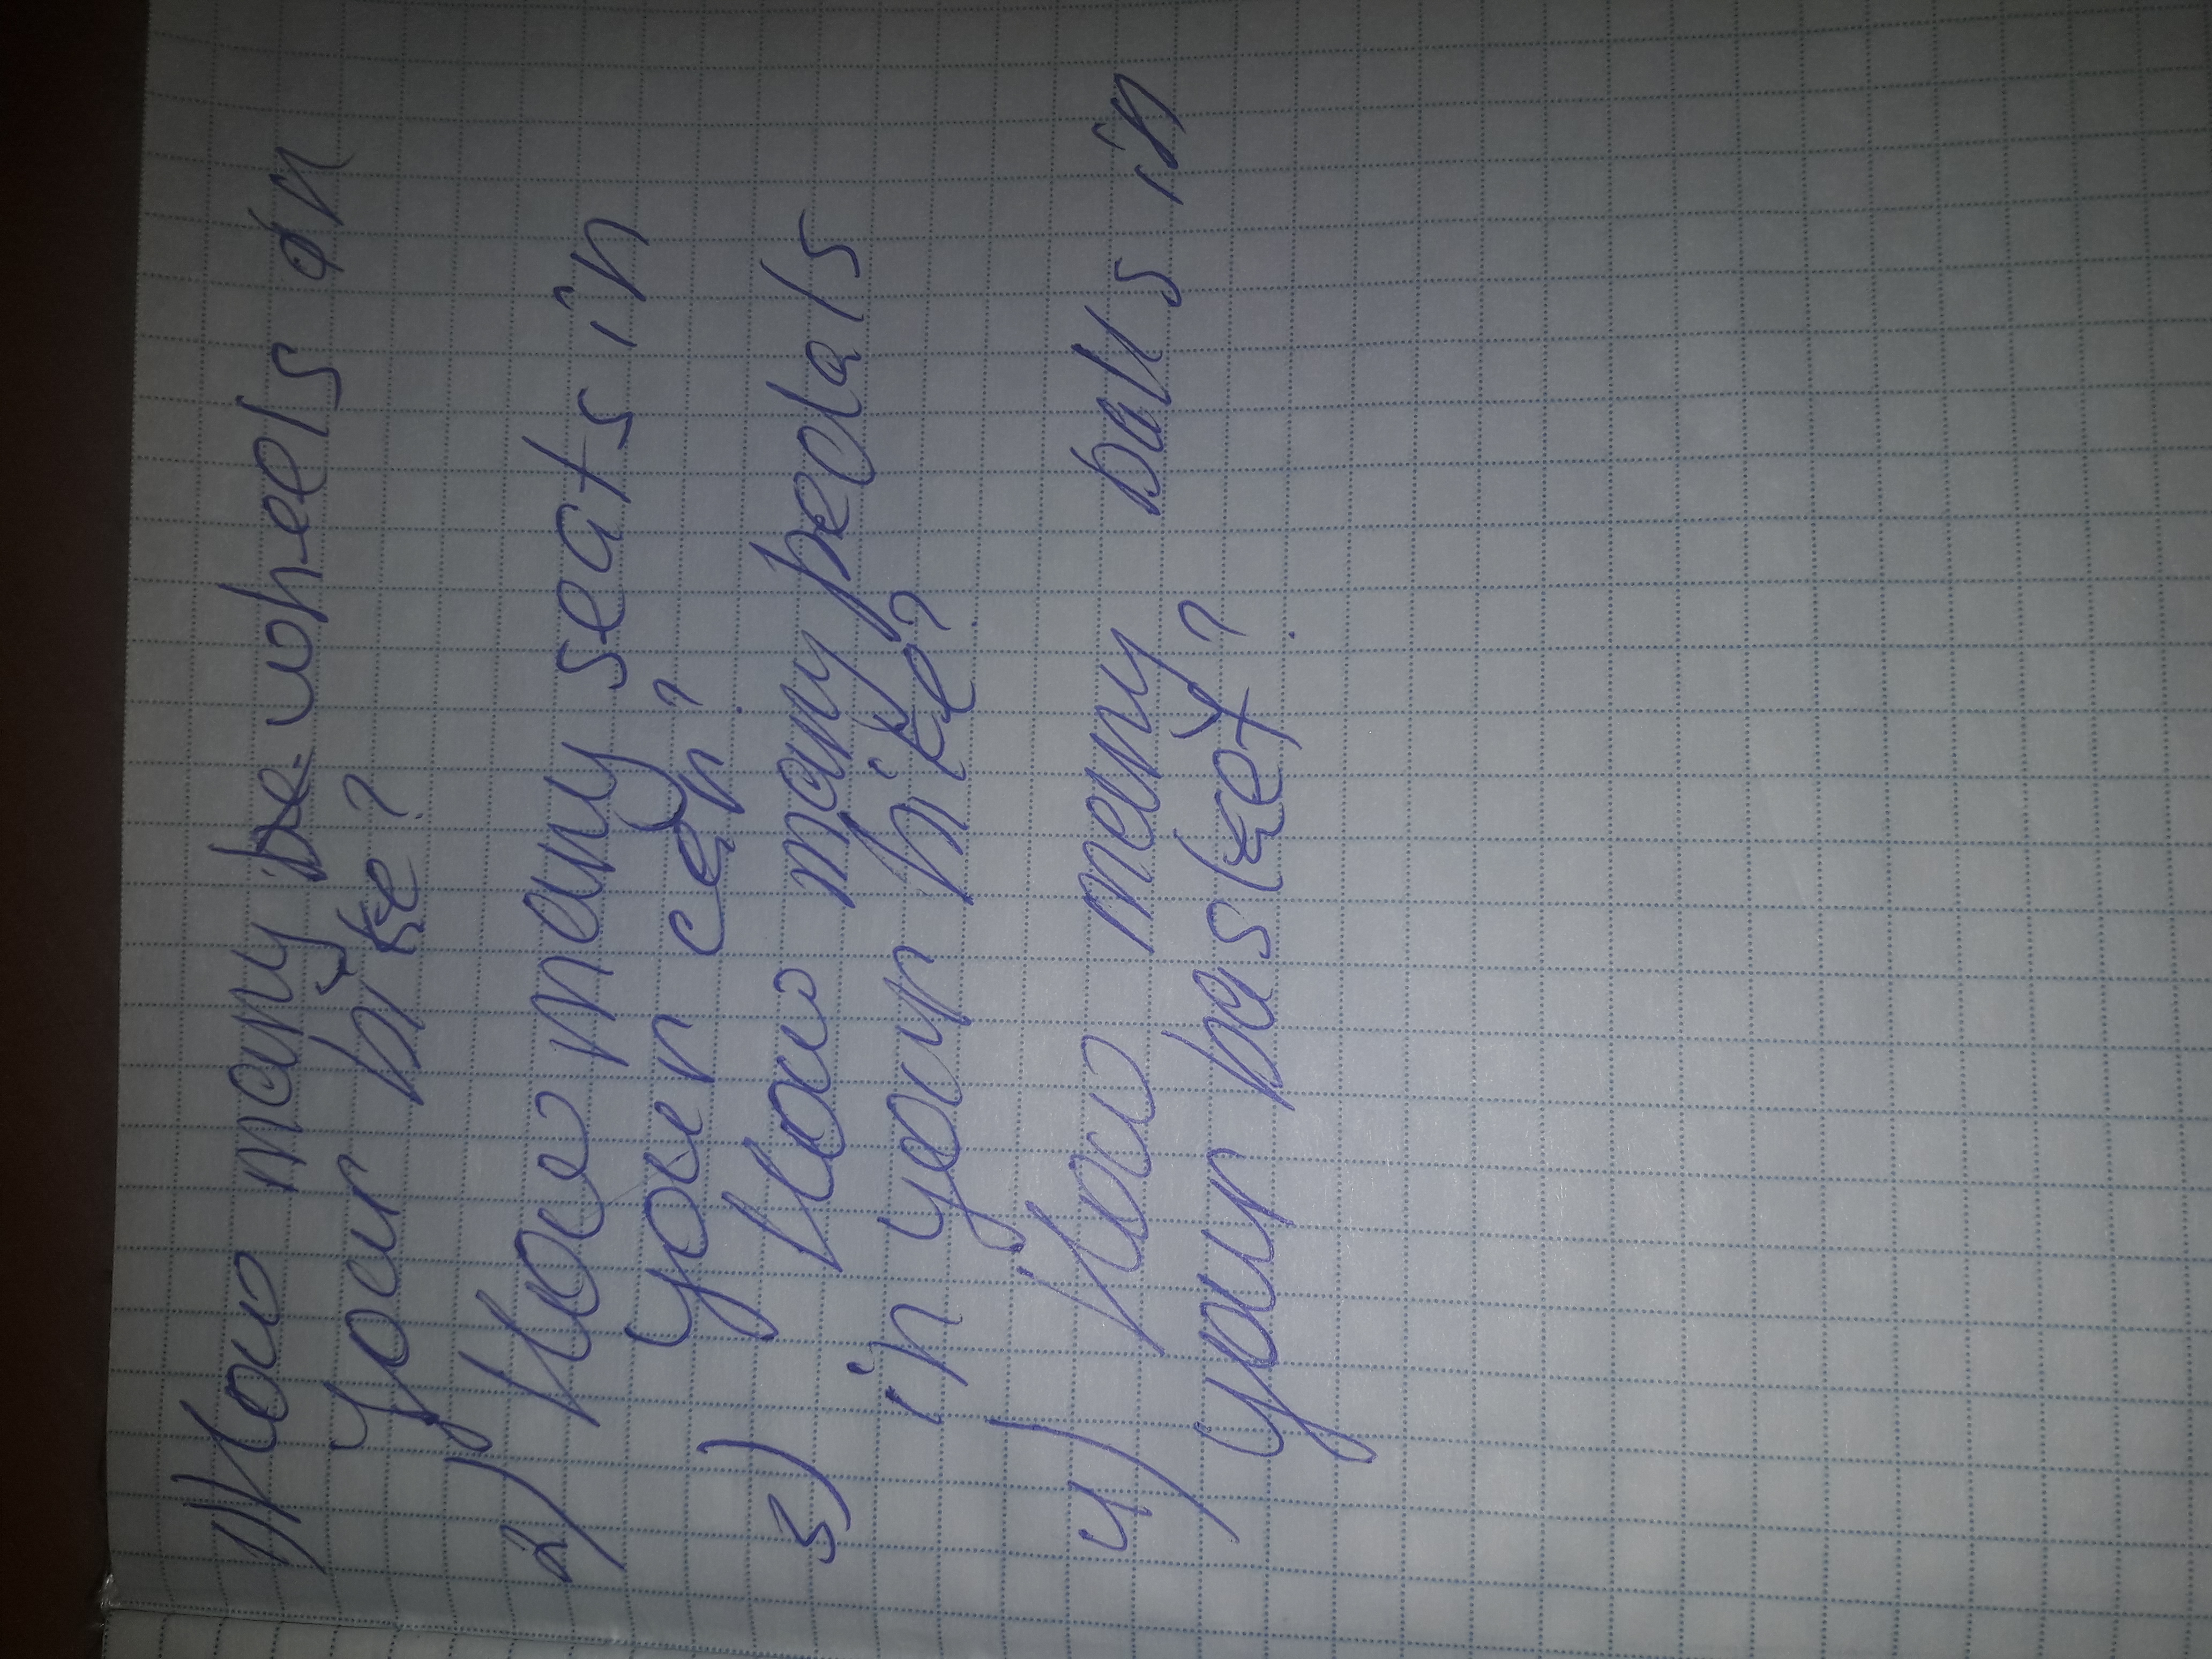 1) How many be wheels on
your bike?
2) How many seats in
your car?
3) How many pedals
in your bike?
4) How many balls in
your basket?